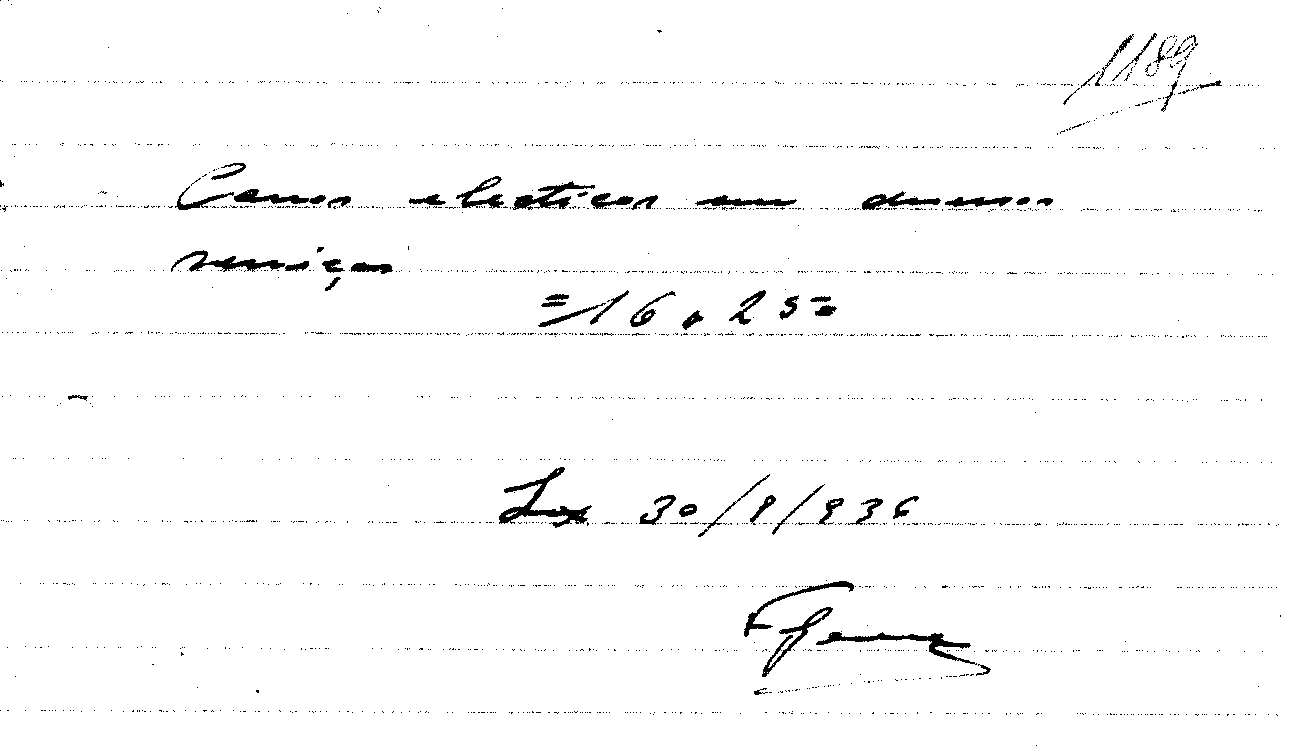 1189
Carros electicos em diversos
serviços
=16$250
Lxª 30/9/936